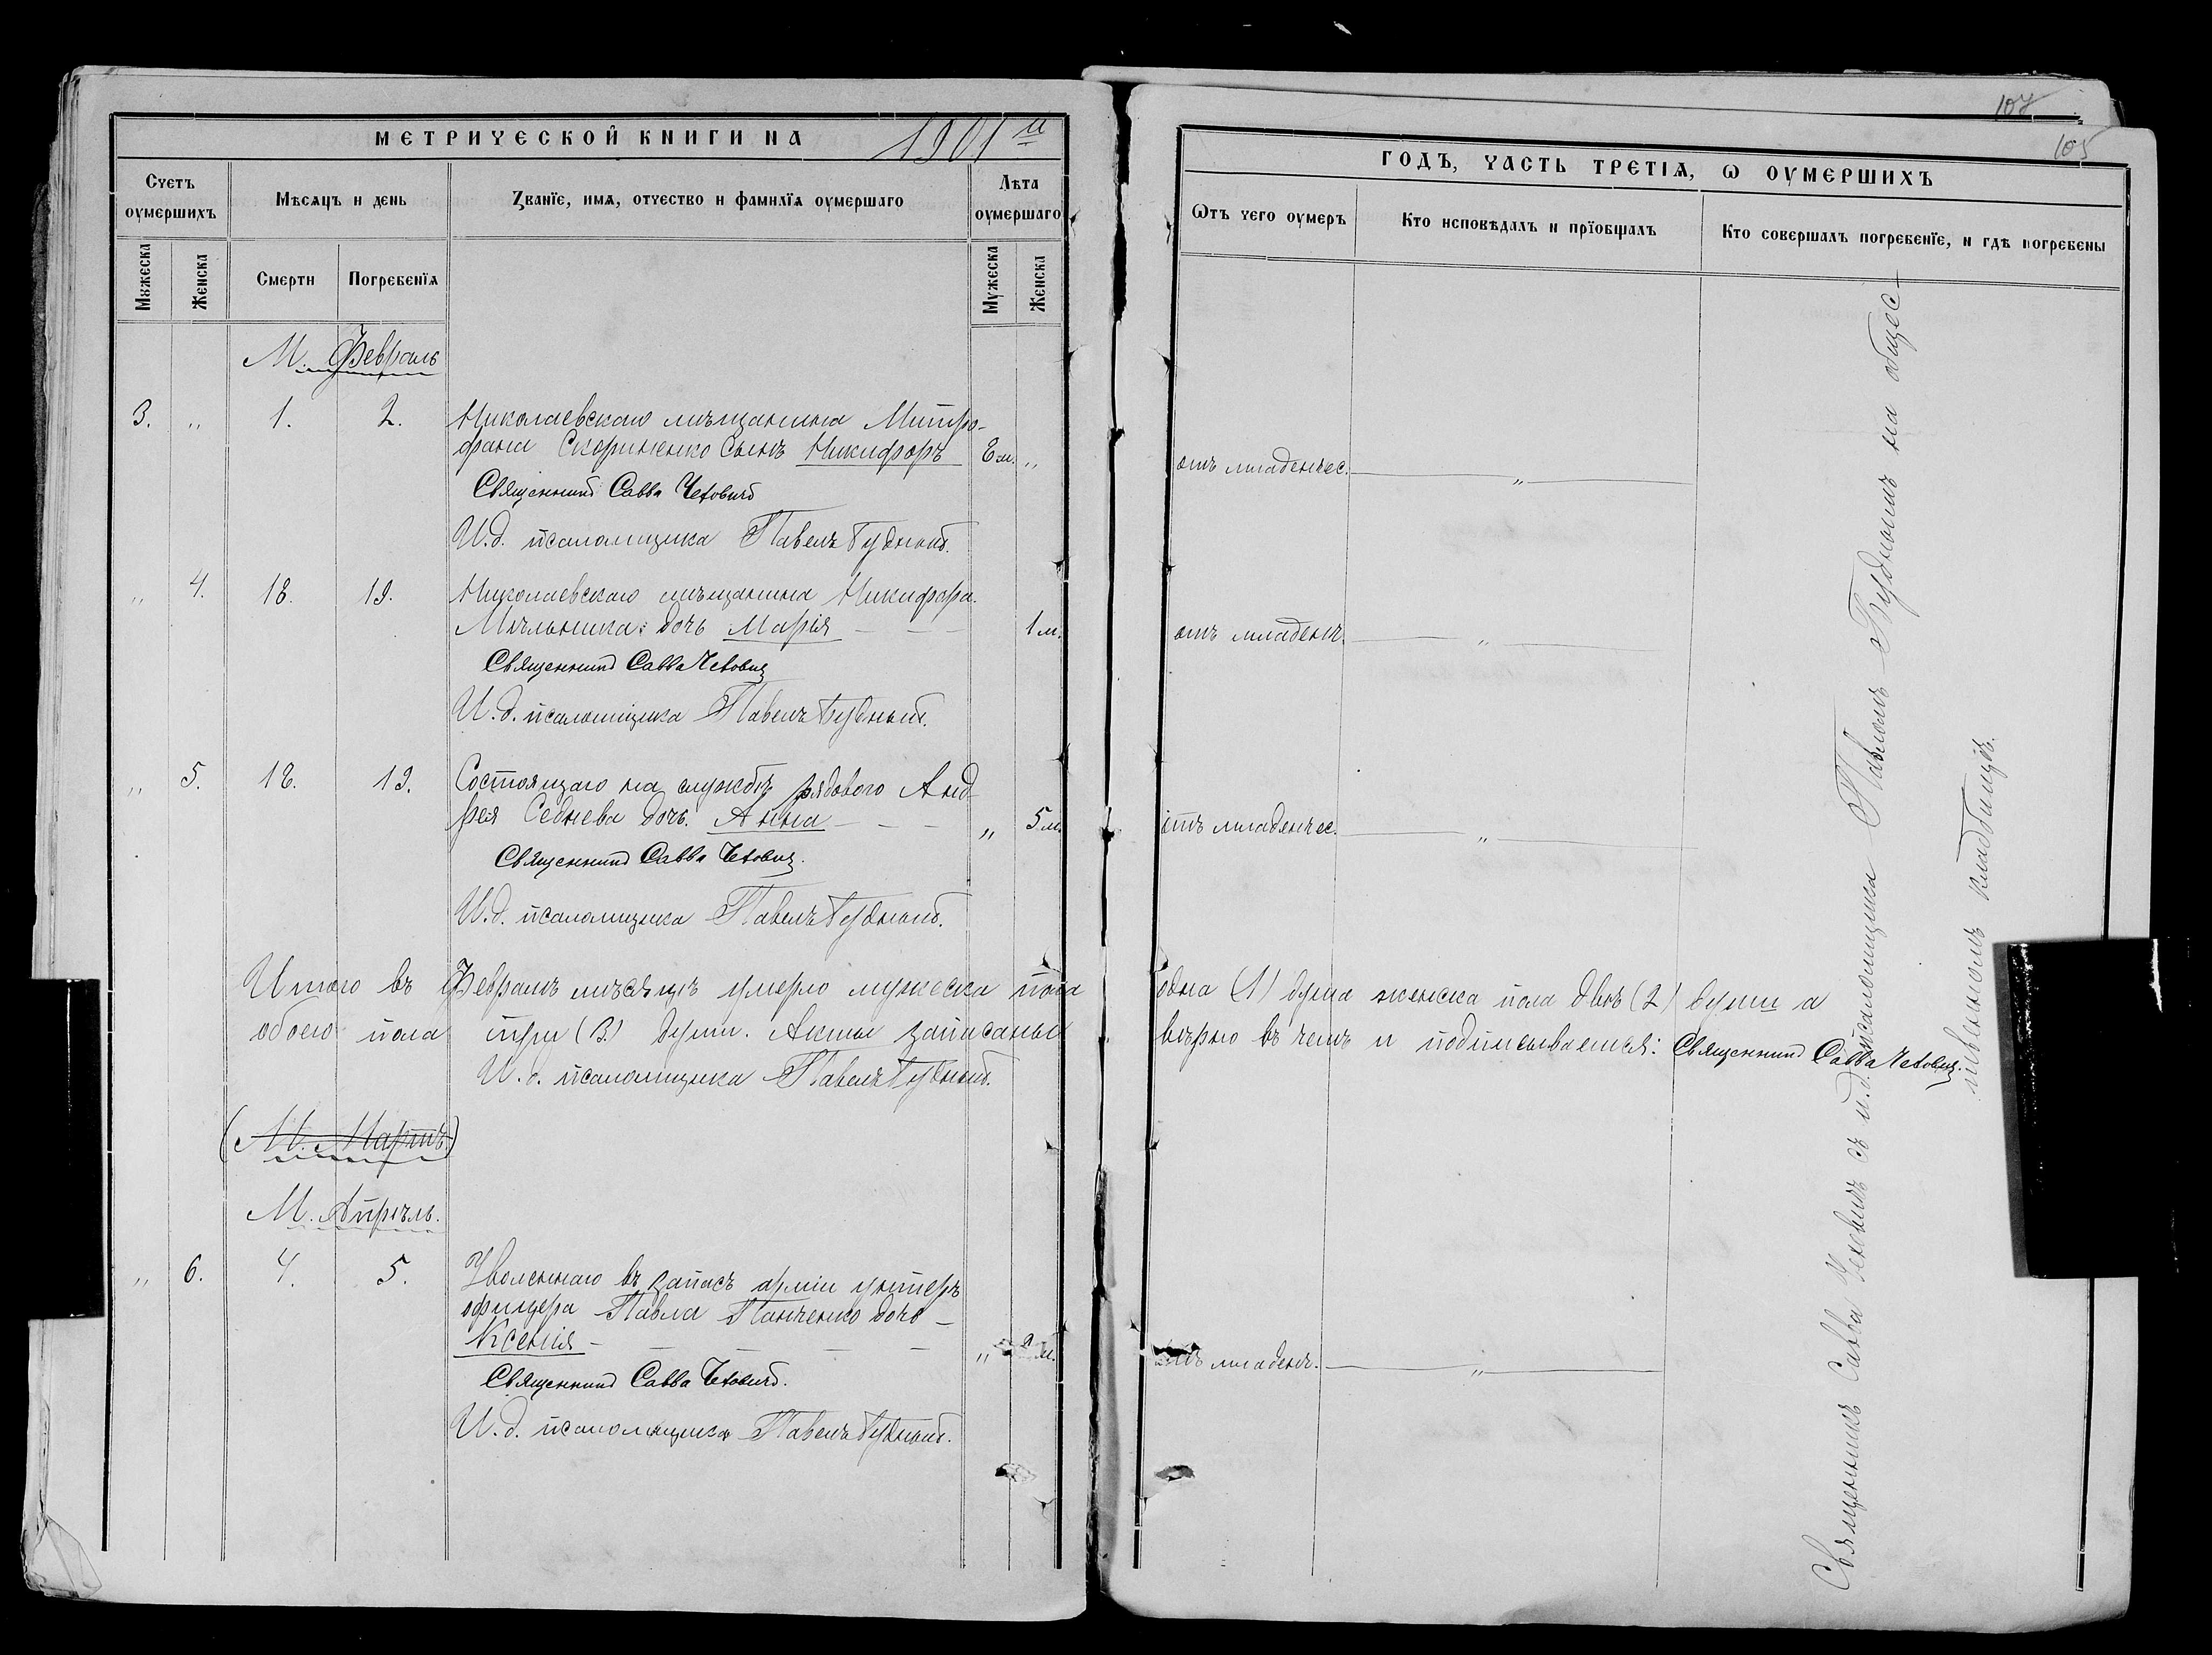 МЕТРИЧЕСКОЙ КНИГИ НА 1901 й
Счетъ оумершихъ
Мѣсяцъ и день
Званїе, имѧ, отчество и фамилїѧ оумершаго
Лѣта оумершаго
Мужеска
Женска
Смерти
Погребенїѧ
Мужеска
Женска
М. Февраль
3. „ 1. 2. Николаевскаго мѣщанина Митро-
фана Скориненко сынъ Никифоръ 8 м. „
Священникъ Савва
И.д. псаломщика Павелъ Будный.
„ 4. 18. 19. Николаевскаго мѣщанина Никифора
Мельника дочь Марія — — — 1 м.
Священникъ Савва
И.д. псаломщика Павелъ Будный.
„ 5. 18. 19. Состоящаго на службѣ рядового Анд-
рея Седнева дочь Анна — — — „ 5 м.
Священникъ Савва
И.д. псаломщика Павелъ Будный.
Итого въ Февралѣ мѣсяцѣ умерло мужеска пола
обоего пола три (3) души. Акты записаны
И.д. псаломщика Павелъ Будный.
(М. Мартъ.)
М. Апрѣль.
„ 6. 4. 5. Уволеннаго въ запасъ арміи унтеръ
офицера Павла Панченко дочь —
Ксенія — — — — — „ м.
Священникъ Савва
И.д. псаломщика Павелъ Будный.
107
105
ГОДЪ, ЧАСТЬ ТРЕТІѦ, Ѡ ОУМЕРШИХЪ
Ѿтъ чего оумеръ
Кто исповѣдалъ и прїобщалъ
Кто совершалъ погребенїе, и гдѣ погребены
отъ младенчес. — „ —
отъ младенч. — „ —
отъ младенчес. — „ —
одна (1) душа женска пола двѣ (2) души а
вѣрно въ чемъ и подписываемся: Священникъ Савва
отъ младенч. — „ —
Священникъ Савва съ и.д. псаломщика Павломъ Буднымъ на общес-
твенномъ кладбищѣ.